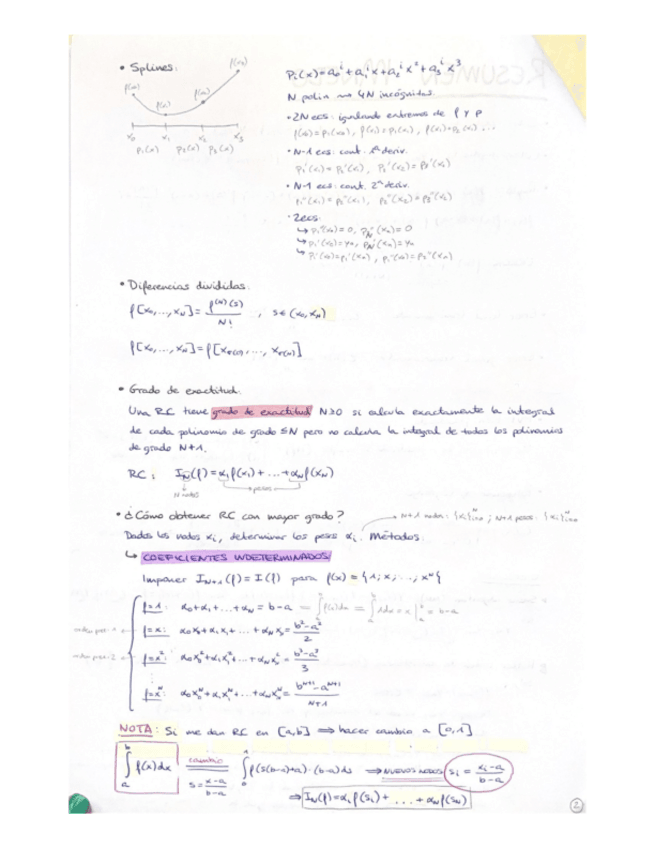 • Splines:
f(x0) f(x1) f(x2) f(x3)
x0 x1 x2 x3
p1(x) p2(x) p3(x)
Pi(x)=a0^i+a1^i x+a2^i x²+a3^i x³
N polin ⇝ 4N incógnitas.
• 2N ecs: igualando extremos de f y p
f(x0)=p1(x0), f(x1)=p1(x1), f(x1)=p2(x1) ...
• N-1 ecs: cont. 1ª deriv.
p1'(x1)=p2'(x1), p2'(x2)=p3'(x2)
• N-1 ecs: cont. 2ª deriv.
p1''(x1)=p2''(x1), p2''(x2)=p3''(x2)
• 2ecs:
↳ p1''(x0)=0, pN''(xn)=0
• Diferencias divididas:
f[x0,...,xN]= f^(N)(s)/N! , s∈(x0,xN)
f[x0,...,xN]=f[xσ(0),..., xσ(N)]
• Grado de exactitud:
Una RC tiene grado de exactitud N≥0 si calcula exactamente la integral
de cada polinomio de grado ≤N pero no calcula la integral de todos los polinomios
de grado N+1.
RC: IN(f)=α1f(x1)+...+αNf(xN)
N nodos pesos
• ¿Cómo obtener RC con mayor grado?
N+1 nodos: {xi}i=0^N ; N+1 pesos: {αi}i=0^N
Dados los nodos xi, determinar los pesos αi. Métodos:
↳ COEFICIENTES INDETERMINADOS
Imponer IN+1(f)=I(f) para f(x)={1;x;...;x^N}
f=1: α0+α1+...+αN=b-a = ∫f(x)dx = ∫1dx = x|a^b = b-a
f=x: α0x0+α1x1+...+αNxN= (b²-a²)/2
f=x²: α0x0²+α1x1²+...+αNxN²= (b³-a³)/3
⋮
f=x^N: α0x0^N+α1x1^N+...+αNxN^N= (b^(N+1)-a^(N+1))/(N+1)
NOTA: Si me dan RC en [a,b] ⇒ hacer cambio a [0,1]
∫a^b f(x)dx cambio s=(x-a)/(b-a) ∫0^1 f(s(b-a)+a)·(b-a)ds ⇒ NUEVOS NODOS si=(xi-a)/(b-a)
⇒ IN(f)=α1f(s1)+ ... +αNf(sN)
2